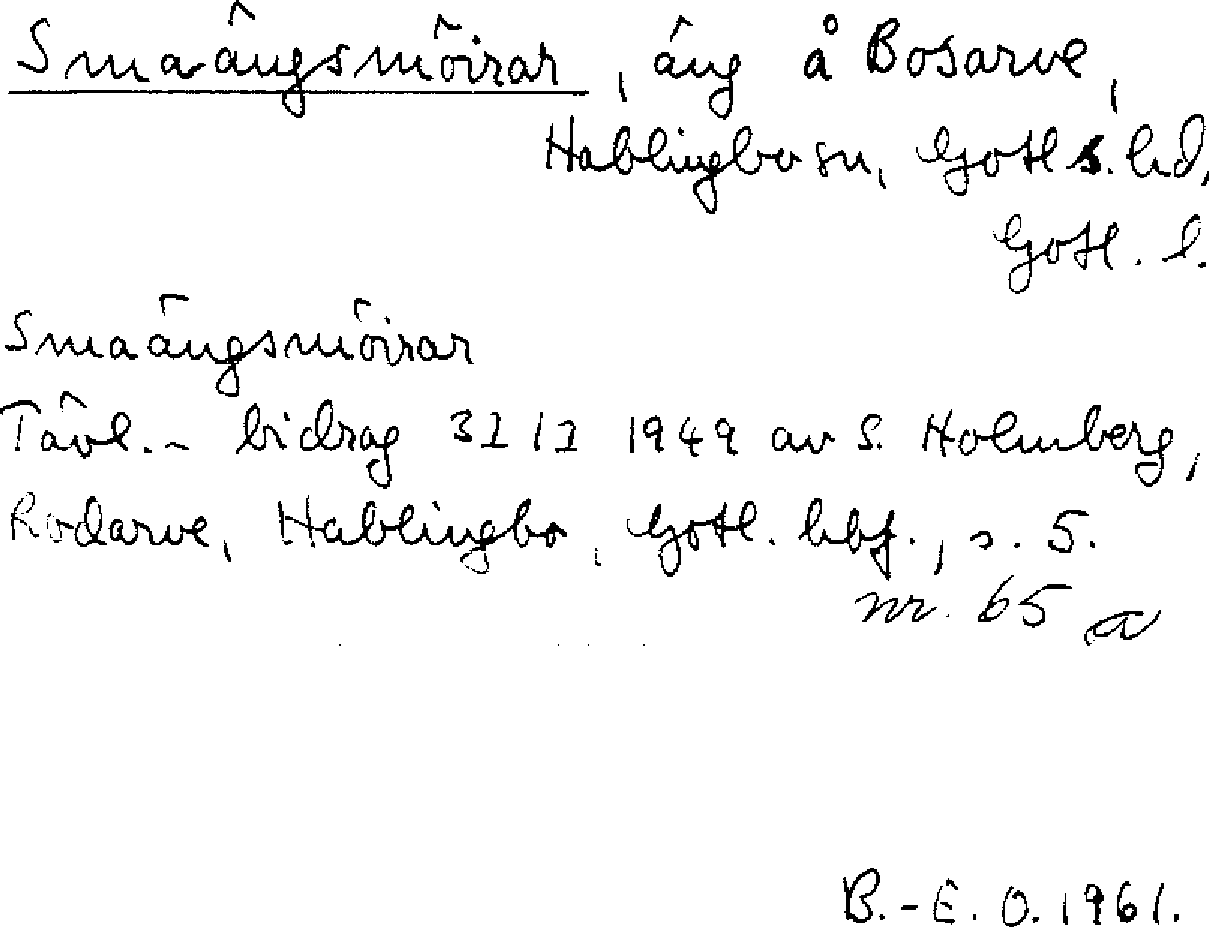 Smaängsmöirar, äng å Bosarve,
Hablingbo sn, Gotl s. hd,
Gotl. l.
Smaängsmöirar
Tävl.- bidrag 31/1 1949 av S. Holmberg,
Rodarve, Hablingbo, Gotl. hbf., s. 5.
nr. 65 a
B.-E. O. 1961.